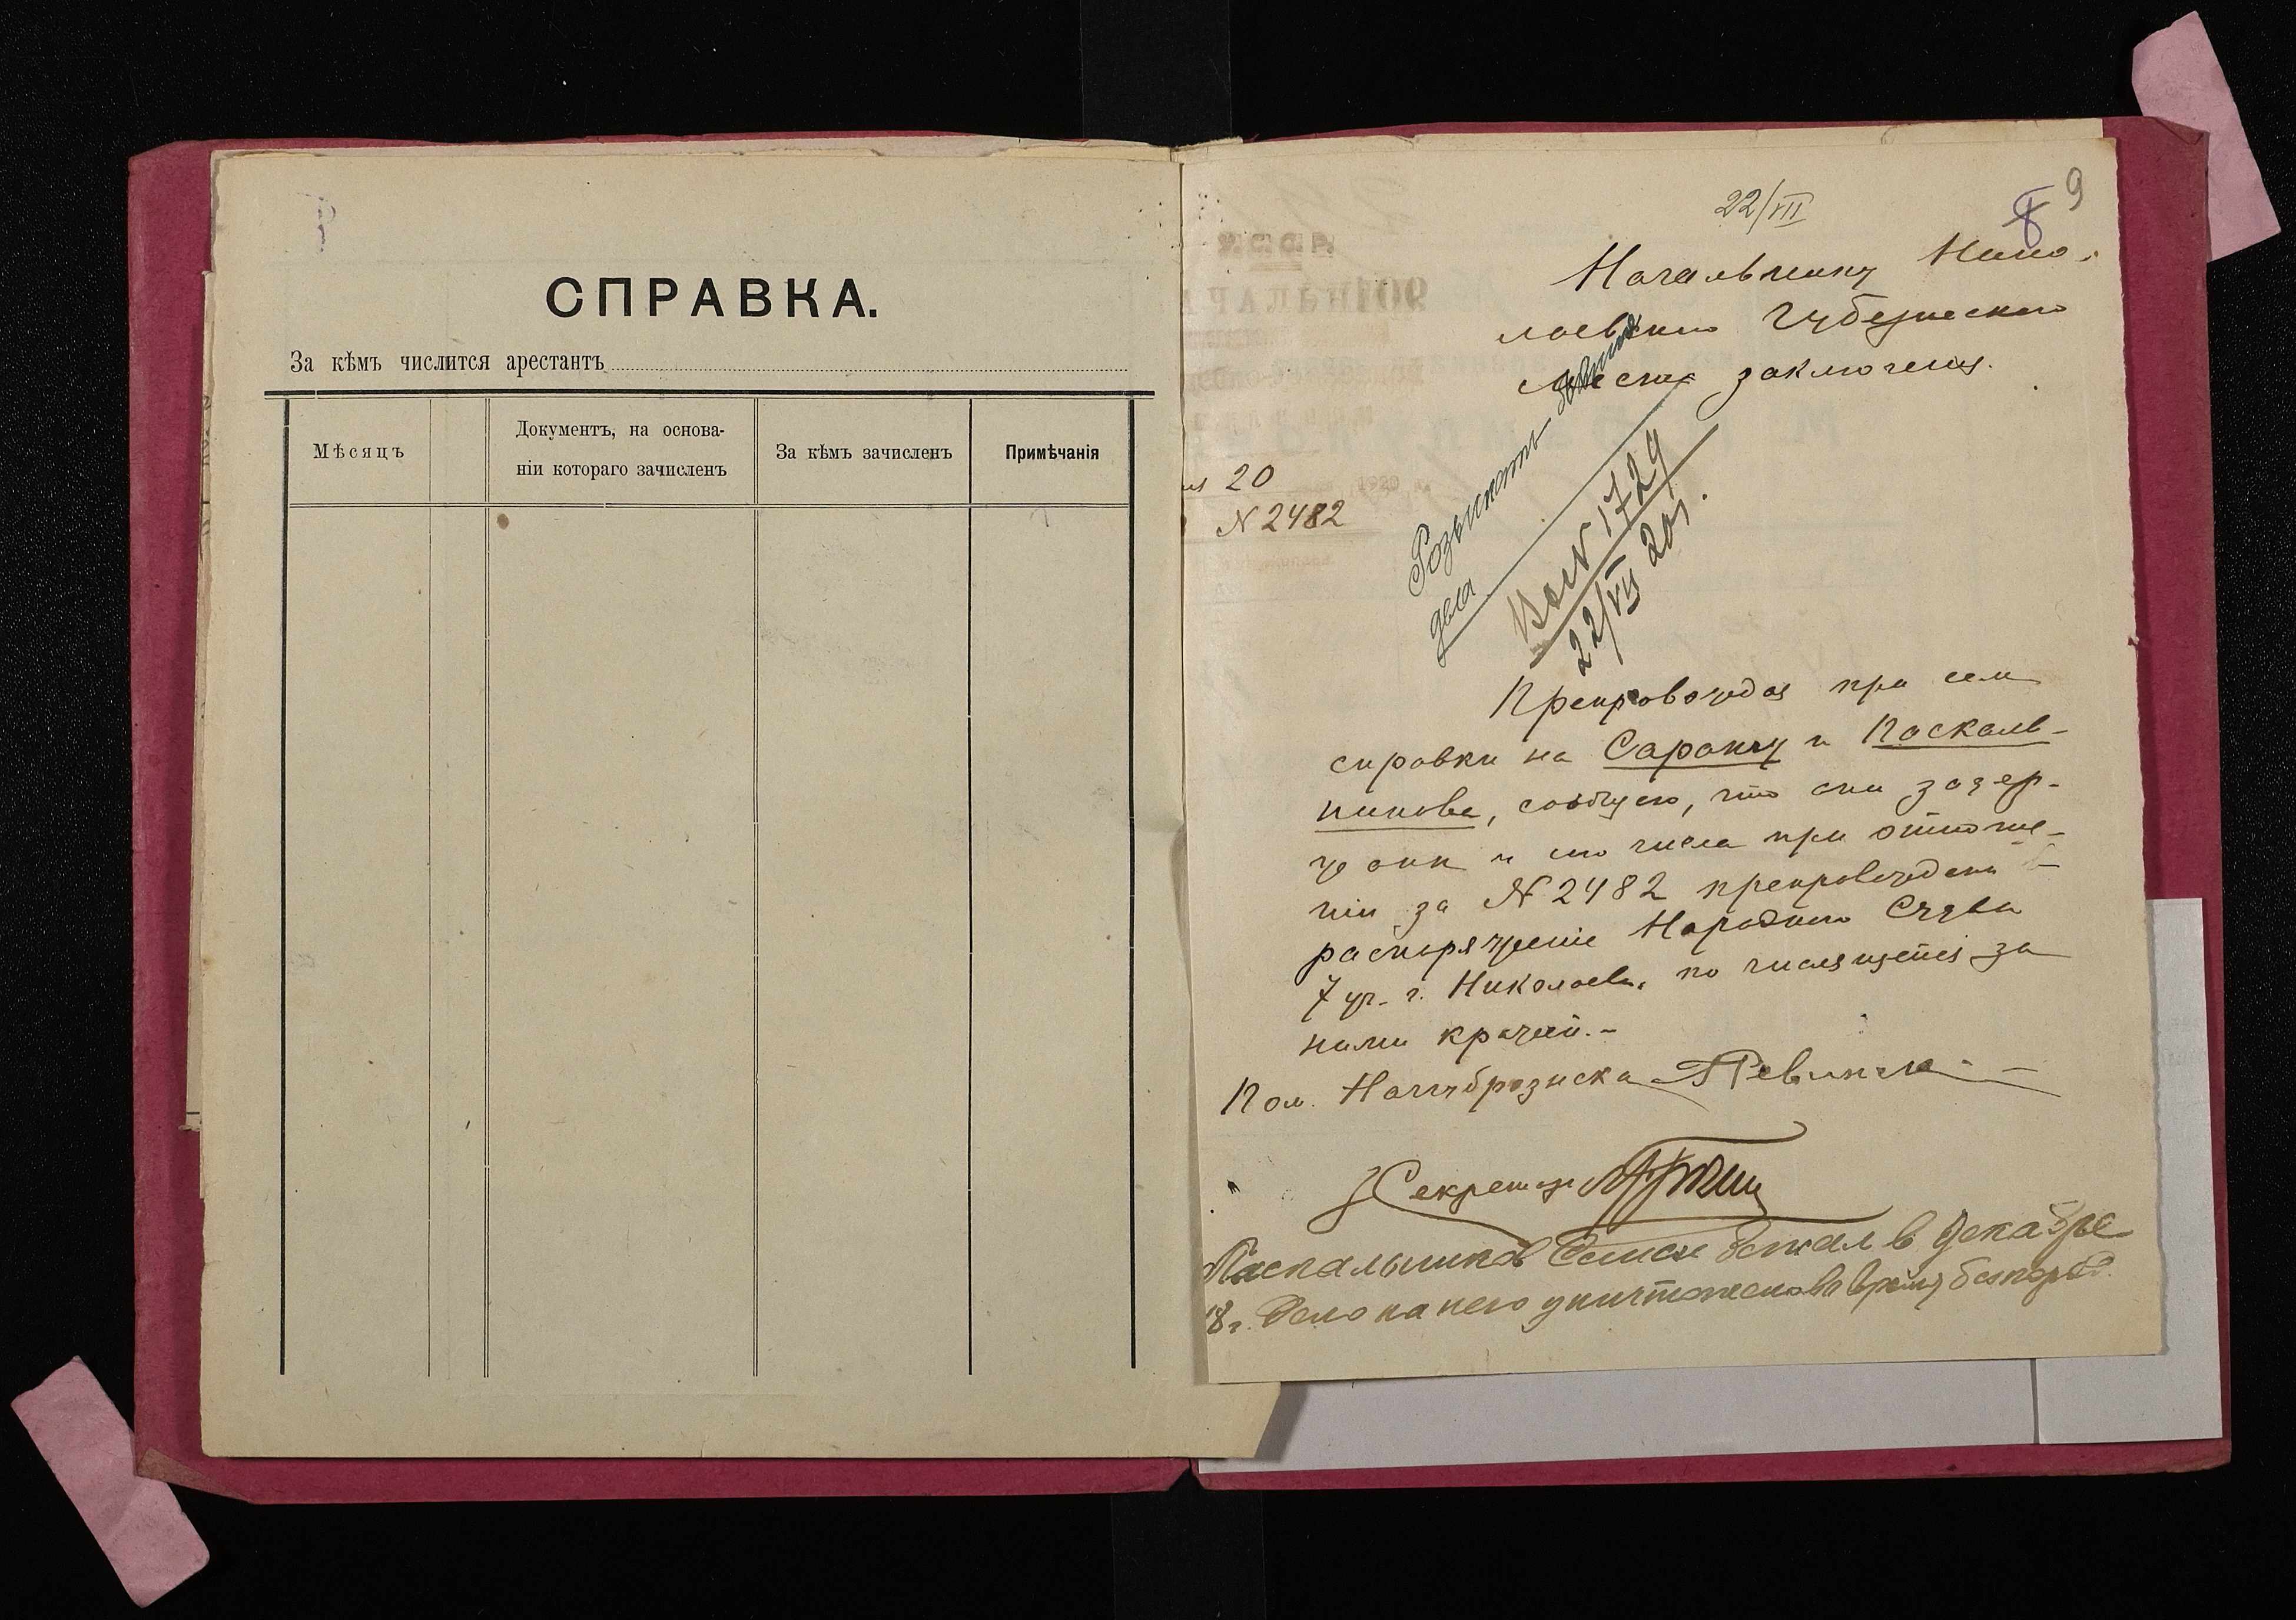 СПРАВКА.
За кѣмъ числится арестантъ
Мѣсяцъ
Документъ, на основа-
ніи котораго зачисленъ
За кѣмъ зачисленъ
Примѣчанія
22/VII
8 9
Начальнику Нико-
лаевского Губернского
места заключения.
20
N 2482
Розыскать
дела
Вх N 1729
22/VII 20г.
Препровождая при сем
справки на Саранчу и Паскаль-
никова, сообщаю, что они задер-
жани и сего числа при отноше-
нии за N 2482 препровождени в
распоряжение Народного Судьи
7 уч. г. Николаева, по числящейся за
ними кражей.-
Пом. Начгуброзиска
Секретарь
Паскальников Семен бежал в декабре
18г. Дело на него уничтожено во время безпоряд.